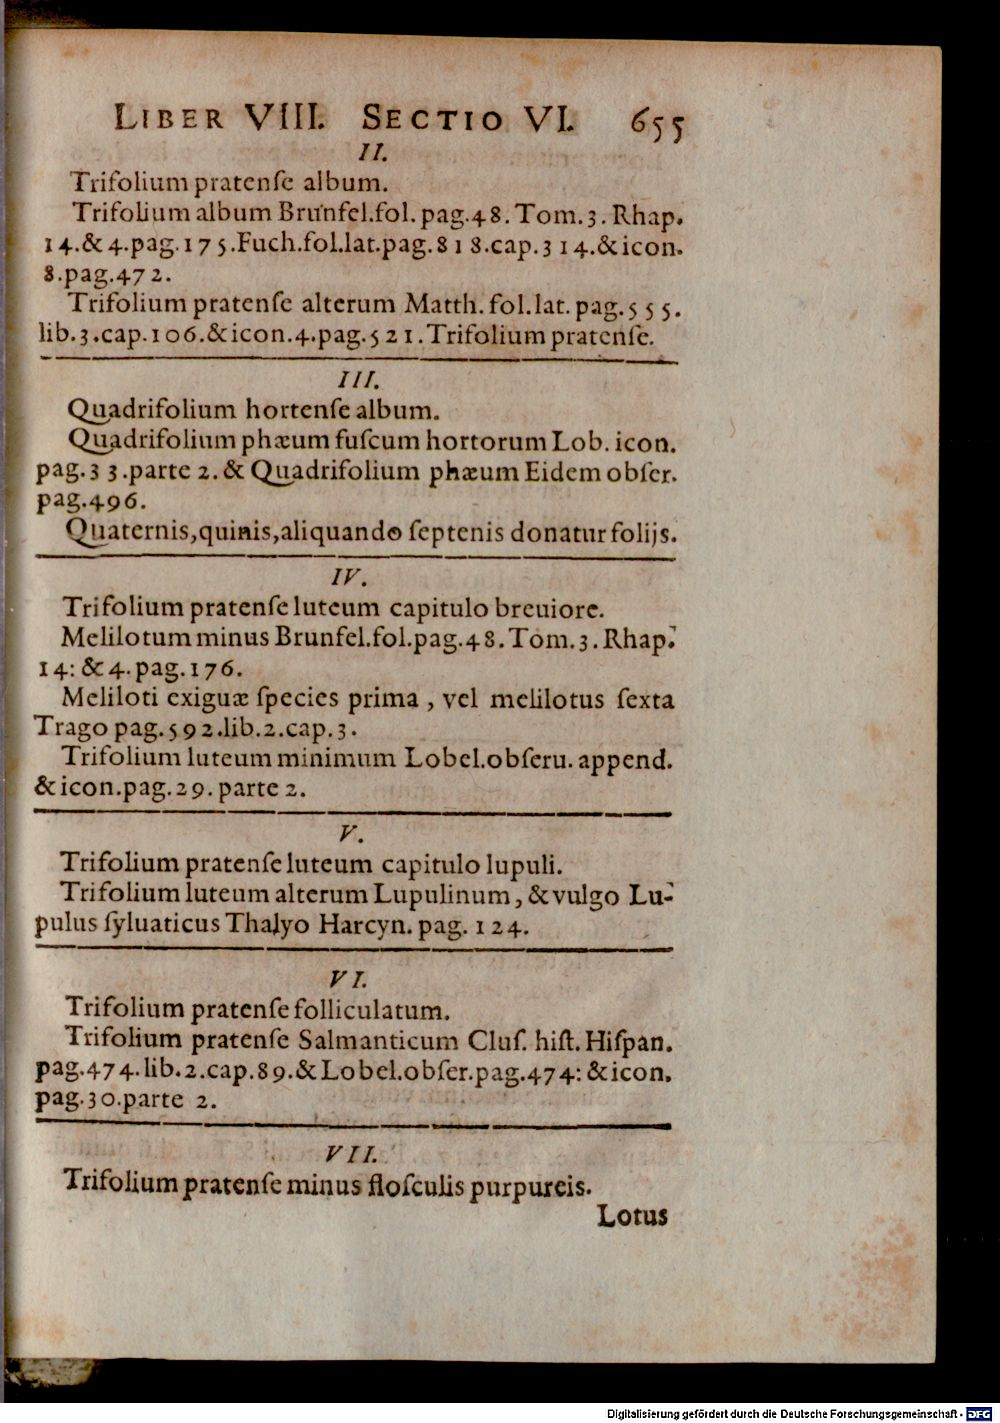 LIBER VIII. SECTIO VI. 655
II.
Trifolium pratenſe album.
Trifolium album Brunfel.fol. pag.48. Tom.3. Rhap.
14.& 4.pag.175.Fuch.fol.lat.pag.818.cap.314.& icon.
8.pag.472.
Trifolium pratenſe alterum Matth. fol.lat. pag.555.
lib.3.cap.106.& icon.4.pag.521.Trifolium pratenſe.
III.
Quadrifolium hortenſe album.
Quadrifolium phæum fuſcum hortorum Lob. icon.
pag.33.parte 2. & Quadrifolium phæum Eidem obſer.
pag.496.
Quaternis,quinis,aliquando ſeptenis donatur folijs.
IV.
Trifolium pratenſe luteum capitulo breuiore.
Melilotum minus Brunfel.fol.pag.48. Tom.3. Rhap.
14: & 4.pag.176.
Meliloti exiguæ ſpecies prima , vel melilotus ſexta
Trago pag.592.lib.2.cap.3.
Trifolium luteum minimum Lobel.obſeru. append.
& icon.pag.29. parte 2.
V.
Trifolium pratenſe luteum capitulo lupuli.
Trifolium luteum alterum Lupulinum , & vulgo Lu-
pulus ſyluaticus Thalyo Harcyn. pag. 124.
VI.
Trifolium pratenſe folliculatum.
Trifolium pratenſe Salmanticum Cluſ. hiſt. Hiſpan.
pag.474.lib.2.cap.89.& Lobel.obſer.pag.474: & icon.
pag.30.parte 2.
VII.
Trifolium pratenſe minus floſculis purpureis.
Lotus
Digitalisierung gefördert durch die Deutsche Forschungsgemeinschaft - DFG